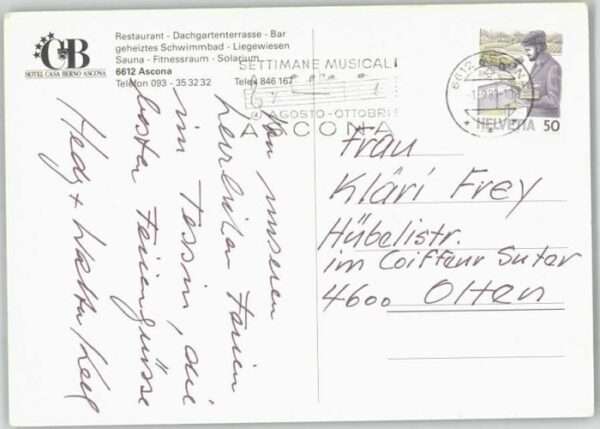 CB
HOTEL CASA BERNO ASCONA
Restaurant - Dachgartenterrasse - Bar
geheiztes Schwimmbad - Liegewiesen
Sauna - Fitnessraum - Solarium
6612 Ascona
Telefon 093 - 35 32 32 Telex 846 167
SETTIMANE MUSICALI
AGOSTO-OTTOBRE
ASCONA
6612 ASCONA
HELVETIA 50
unseren
herrlichen Ferien
im Tessin, die
besten Feriengrüsse
Hedy +
Frau
Kläri Frey
Hübelistr.
im Coiffeur Suter
4600 Olten